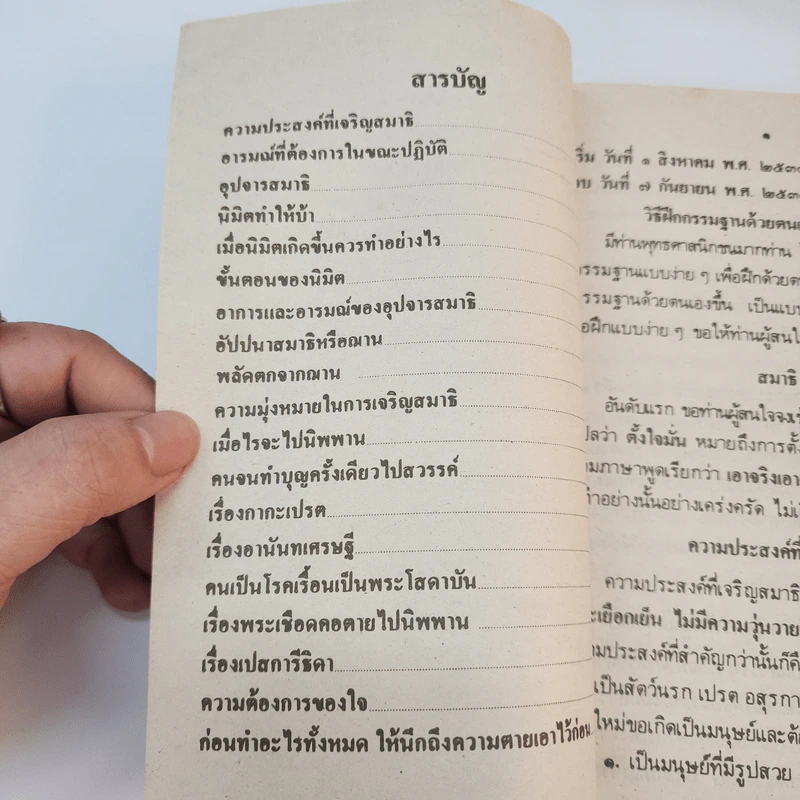 สารบัญ
ความประสงค์ที่เจริญสมาธิ
อารมณ์ที่ต้องการในขณะปฏิบัติ
อุปจารสมาธิ
นิมิตทำให้บ้า
เมื่อนิมิตเกิดขึ้นควรทำอย่างไร
ขั้นตอนของนิมิต
อาการและอารมณ์ของอุปจารสมาธิ
อัปปนาสมาธิหรือฌาน
พลัดตกจากฌาน
ความมุ่งหมายในการเจริญสมาธิ
เมื่อไรจะไปนิพพาน
คนจนทำบุญครั้งเดียวไปสวรรค์
เรื่องกากะเปรต
เรื่องอานันทเศรษฐี
คนเป็นโรคเรื้อนเป็นพระโสดาบัน
เรื่องพระเชือดคอตายไปนิพพาน
เรื่องเปสการีธิดา
ความต้องการของใจ
ก่อนทำอะไรทั้งหมด ให้นึกถึงความตายเอาไว้ก่อน
๑
วันที่ ๑ สิงหาคม พ.ศ. ๒๕๓
วันที่ ๗ กันยายน พ.ศ. ๒๕๓
วิธีฝึกกรรมฐานด้วยตน
มีท่านพุทธศาสนิกชนมากท่าน
กรรมฐานแบบง่าย ๆ เพื่อฝึกด้วยต
กรรมฐานด้วยตนเองขึ้น เป็นแบบ
ฝึกแบบง่าย ๆ ขอให้ท่านผู้สนใ
สมาธิ
อันดับแรก ขอท่านผู้สนใจจง
ปลว่า ตั้งใจมั่น หมายถึงการตั้ง
ามภาษาพูดเรียกว่า เอาจริงเอา
ทำอย่างนั้นอย่างเคร่งครัด ไม่
ความประสงค์ที่
ความประสงค์ที่เจริญสมาธิ
เยือกเย็น ไม่มีความวุ่นวาย
วามประสงค์ที่สำคัญกว่านั้นก็คื
เป็นสัตว์นรก เปรต อสุรกา
ใหม่ขอเกิดเป็นมนุษย์และตั
๑. เป็นมนุษย์ที่มีรูปสวย